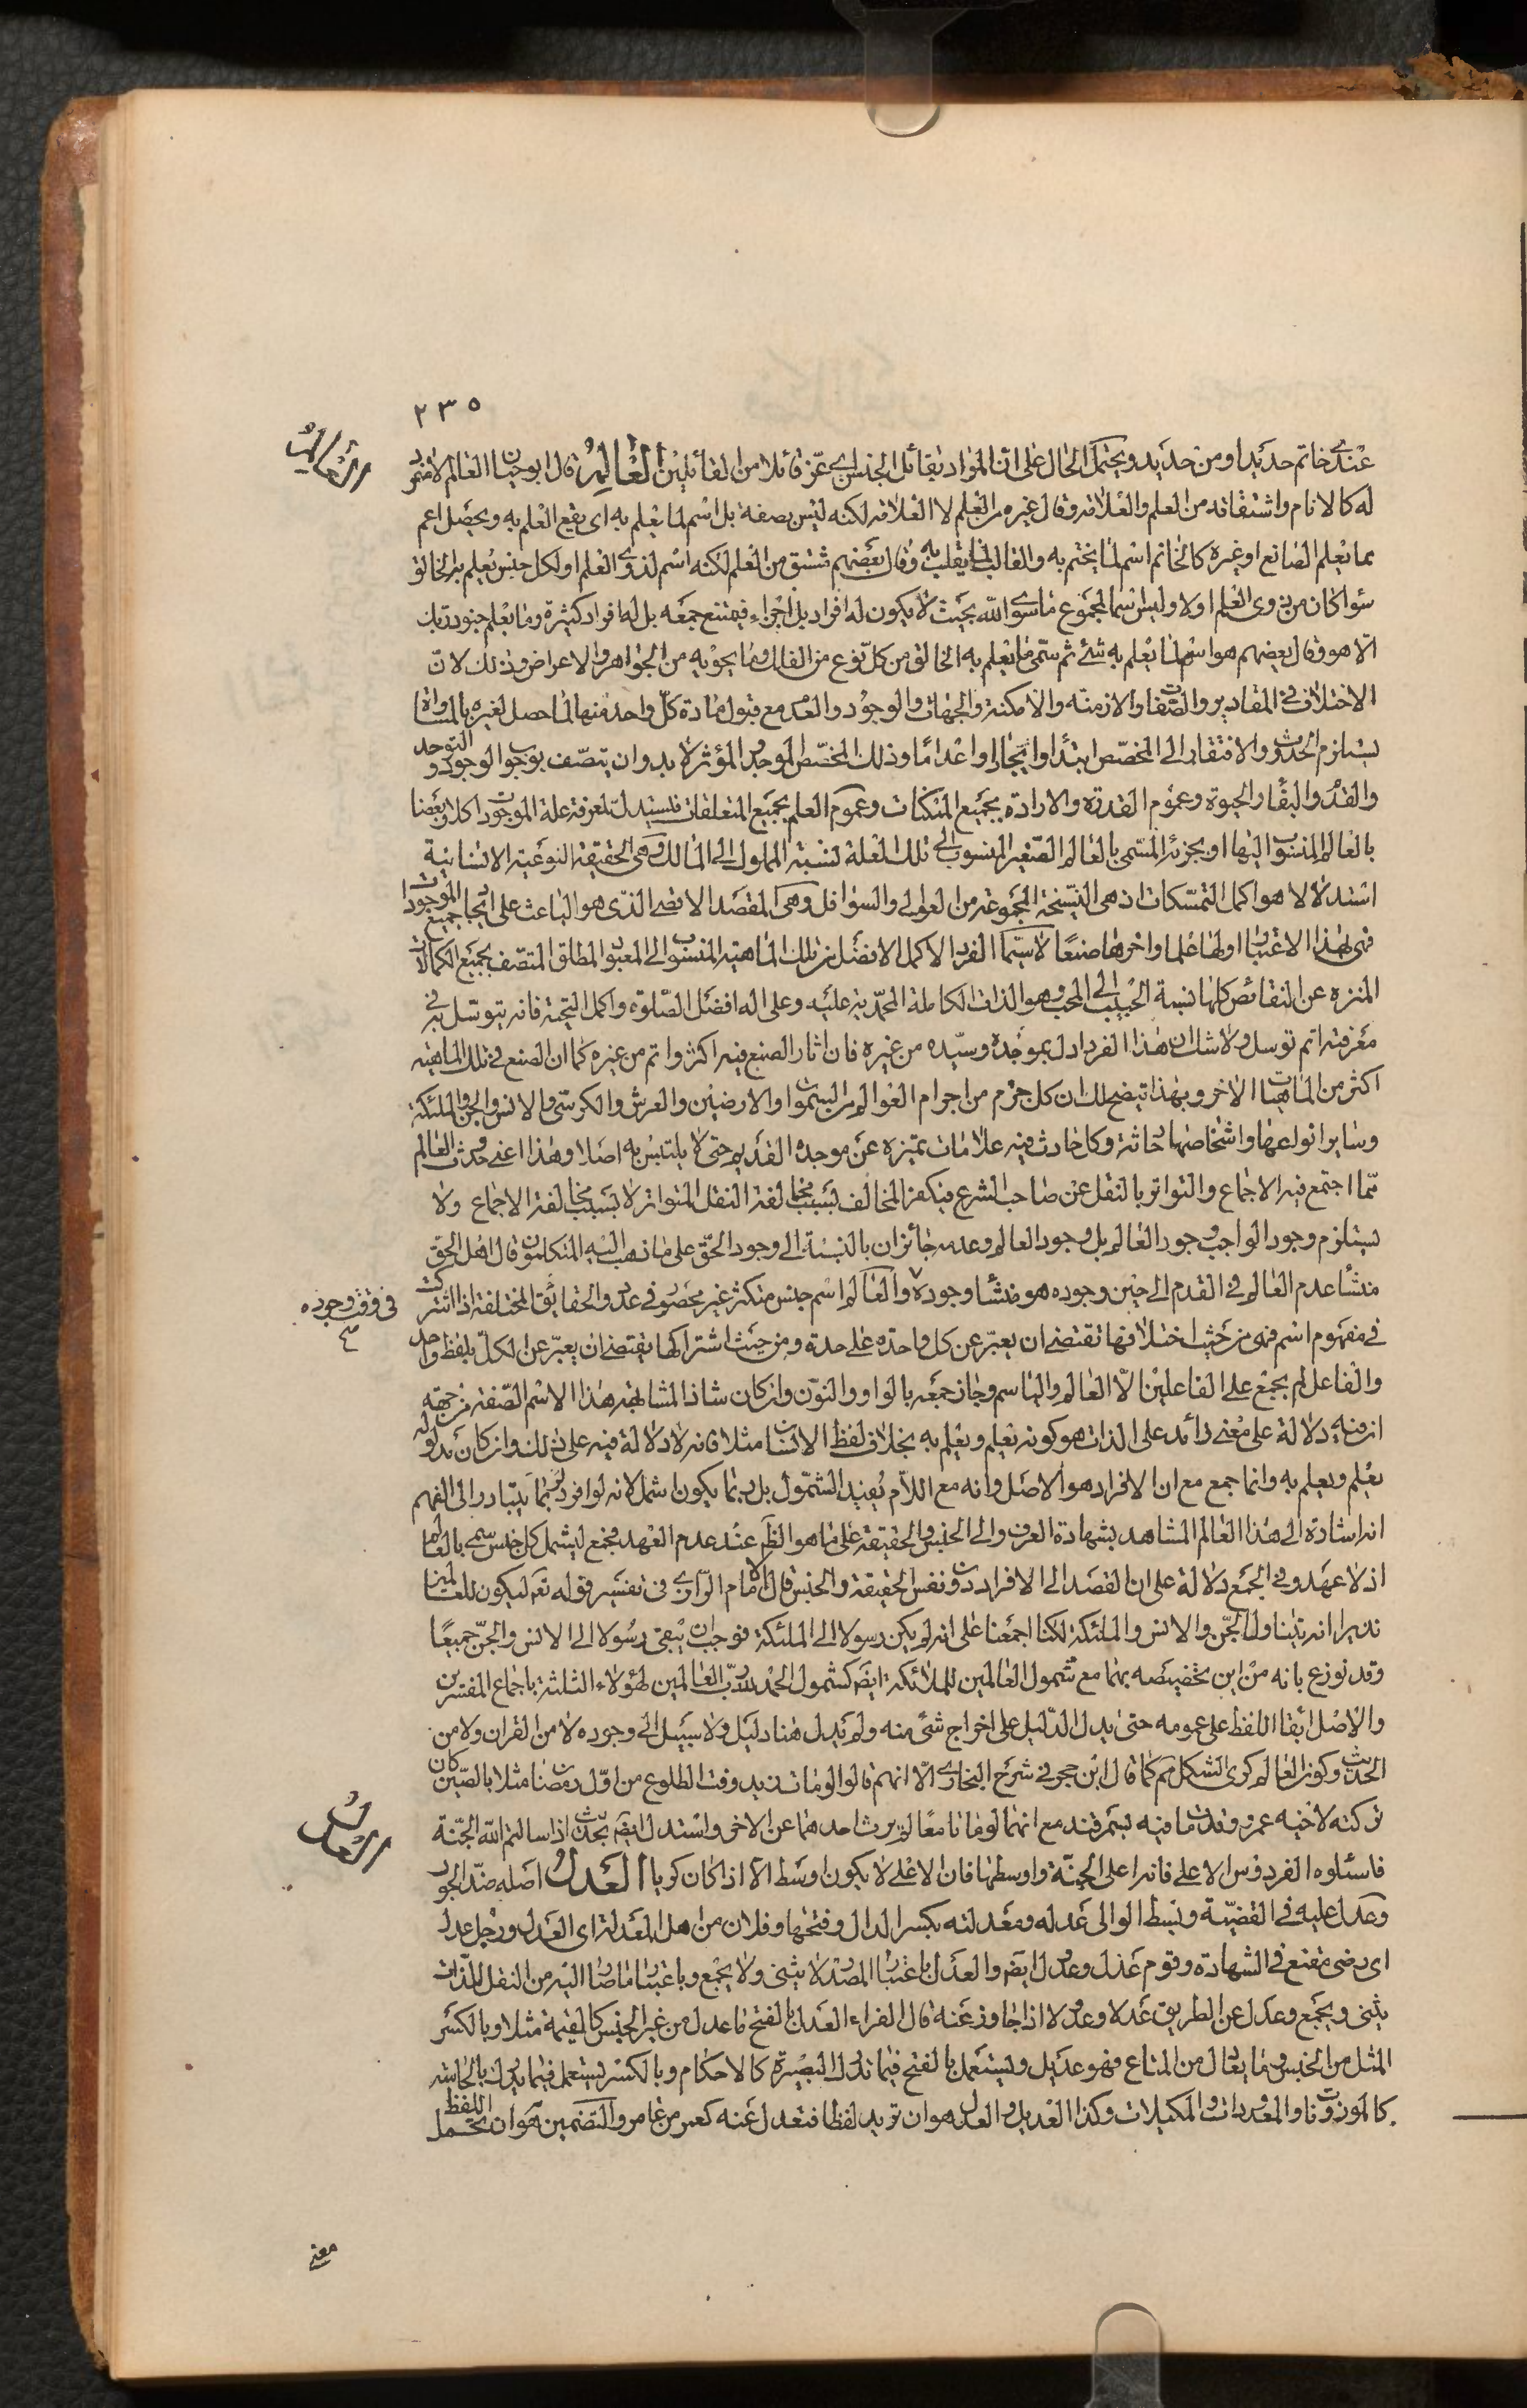 ٢٣٥
عندى خاتم حديدا ومن حديد ويحتمل الحال على ان المراد بقائل الجنس اى عز قائلا من القائلين العالم قال ابو حيان العالم لا مفرد
العالم
له كالانام واشتقاقه من العلم والعلامة وقال غيره من العلم لا العلامة لكنه ليس بصفة بل اسم لما يعلم به اى يقع العلم به ويحصل اعم
مما يعلم الصانع او غيره كالخاتم اسم لما يختم به والقالب لما يقلب به وقال بعضهم مشتق من العلم لكنه اسم لذوى العلم او لكل جنس يعلم به الخالق
سواء كان من ذوى العلم اولا وليس اسما لمجموع ما سوى الله بحيث لا يكون له افراد بل اجزاء فيمتنع جمعه بل له افراد كثيرة وما يعلم جنود ربك
الا هو وقال بعضهم هو اسم لما يعلم به شئ ثم سمى ما يعلم به الخالق من كل نوع من الفلك وما يحويه من الجواهر والاعراض وذلك لان
الاختلاف فى المقادير والصفات والازمنه والامكنة والجهات والوجود والعدم مع قبول مادة كل واحد منها لما حصل لغيره بالمساواة
يستلزم الحدوث والافتقار الى المخصص ابتداء وايجادا واعداما وذلك المخصص الموجد المؤثر لا بد وان يتصف بوجوب الوجود والتوحد
والقدم والبقاء والحيوة وعموم القدرة والارادة بجميع الممكنات وعموم العلم بجميع المتعلقات فليستدل لمعرفة علة الموجودات كلا وبعضا
بالعالم المنسوب اليها او بجزئه المسمى بالعالم الصغير المنسوب الى تلك العلة لنسبة المملوك الى المالك وهى الحقيقة النوعية الانسانية
استدلالا هو اكمل التمسكات اذ هى النسخة المجموعة من العوالى والسوافل وهى المقصد الاقصى الذى هو الباعث على ايجاد جميع الموجودات
فهى بهذا الاعتبار اولها علما واخرها صنعا لا سيما الفرد الاكمل الافضل من تلك الماهية المنسوب الى المعبود المطلق المتصف بجميع الكمالات
المنزه عن النقائص كلها نسبة الحبيب الى المحب وهو الذات الكاملة المحمدية عليه وعلى اله افضل الصلوة واكمل التحية فانه يتوسل به فى
معرفته اتم توسل ولا شك ان هذا الفرد ادل بموجده وسيده من غيره فان اثار الصنع فيه اكثر واتم من غيره كما ان الصنع فى تلك الماهية
اكثر من الماهيات الاخر وبهذا تيضح لك ان كل جرم من اجرام العوالم من السموات والارضين والعرش والكرسى والانس والجن والملئكة
وسائر انواعها واشخاصها حادثة وكل حادث فيه علامات تميزه عن موجده القديم حتى لا يلتبس به اصلا وهذا اعنى حدوث العالم
مما اجتمع فيه الاجماع والتواتر بالنقل عن صاحب الشرع فيكفر المخالف بسبب مخالفة النقل المتواتر لا بسبب مخالفة الاجماع ولا
يستلزم وجود الواجب وجود العالم بل وجود العالم وعدمه جائزان بالنسبة الى وجود الحق على ما ذهب اليه المتكلمون قال اهل الحق
منشأ عدم العالم فى القدم الى حين وجوده هو منشأ وجوده والعالم اسم جنس متكثر غير محصور فى عدد والحقايق المختلفة اذا اشتركت
فى وقت وجوده صح
فى مفهوم اسم فهى من حيث اختلافها تقتضى ان يعبر عن كل واحدة على حدة ومن حيث اشتراكها يقتضى ان يعبر عن الكل بلفظ واحد
والفاعل لم يجمع على الفاعلين الا العالم والياسم وجاز جمعه بالواو والنون وان كان شاذا لمشابهة هذا الاسم الصفة من جهة
ان فيه دلالة على معنى زائد على الذات هو كونه يعلم ويعلم به بخلاف لفظ الانسان مثلا فانه لا دلالة فيه على ذلك وان كان مدلوله
يعلم ويعلم به وانما جمع مع ان الافراد هو الاصل وانه مع اللام يفيد الشمول بل ربما يكون اشمل لانه لو افرد لربما يتبادر الى الفهم
انه اشارة الى هذا العالم المشاهد بشهادة العرف والى الجنس والحقيقة على ما هو الظ عند عدم العهد فجمع ليشمل كل جنس سمى بالعالم
اذ لا عهد وفى الجمع دلالة على ان القصد الى الافراد دون نفس الحقيقة والجنس قال الامام الرازى فى تفسير قوله تع ليكون للعالمين
نذيرا انه يتناول الجن والانس والملئكة لكنا اجمعنا على انه لم يكن رسولا الى الملئكة فوجب ان يبقى رسولا الى الانس والجن جميعا
وقد نوزع بانه من اين تخصيصه بهما مع شمول العالمين للملائكة ايض كشمول الحمد لله رب العالمين لهؤلاء الثلثة باجماع المفسرين
والاصل ابقاء اللفظ على عمومه حتى يدل الدليل على اخراج شئ منه ولم يدل هنا دليل ولا سبيل الى وجوده لا من القران ولا من
الحديث وكون العالم كرى الشكل كما قال ابن حجر فى شرح البخارى الا انهم قالوا لو مات زيد وقت الطلوع من اول رمضان مثلا بالصين كان
تركته لاخيه عمرو وقد مات فيه بسمرقند مع انهما لو ماتا معا لم يرث احدهما عن الاخر واستدل ايضا بحديث اذا سالتم الله الجنة
فاسئلوه الفردوس الاعلى فانه اعلى الجنة واوسطها فان الاعلى لا يكون اوسط الا اذا كان كريا العدل اصله ضد الجور
العدل
وعدل عليه فى القضية وبسط الوالى عدله ومعدلته بكسر الدال وفتحها وفلان من اهل المعدلة اى العدل ورجل عدل
اى رضى مقنع فى الشهادة وقوم عدل وعدول ايض والعدل باعتبار المصدر لا يثنى ولا يجمع وباعتبار ما صار اليه من النقل للذات
يثنى ويجمع وعدل عن الطريق عدلا وعدولا اذا جاوز عنه قال الفراء العدل بالفتح ما عدل من غير الجنس كالقيمة مثلا وبالكسر
المثل من الجنس وما يعادل من المتاع فهو عديل ويستعمل بالفتح فيما تدرك البصيرة كالاحكام وبالكسر يستعمل فيما يدرك بالحاسة
كالموزونات والمعدودات والمكيلات وكذا العديل والعدل هو ان تريد لفظا فتعدل عنه كعمر من عامر والتضمين هو ان يحمل اللفظ
معنى